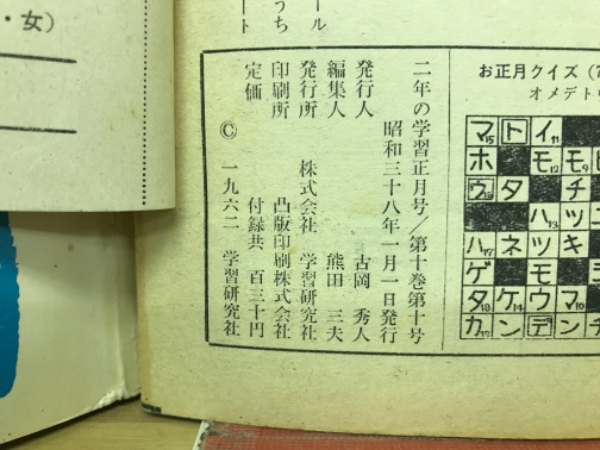 お正月クイズ
オメデト
マ15トイ11
ホモ12モ9
ウタチ
ハ13ツ
ハ17ネツキ
ゲモ
タ18ケ14ウマ10
カ19ンデン
二年の学習正月号／第十巻第十号
昭和三十八年一月一日発行
発行人 古岡 秀人
編集人 熊田 三夫
発行所 株式会社 学習研究社
印刷所 凸版印刷株式会社
定価 付録共 百三十円
© 一九六二 学習研究社
ール
うち
ート
・女）